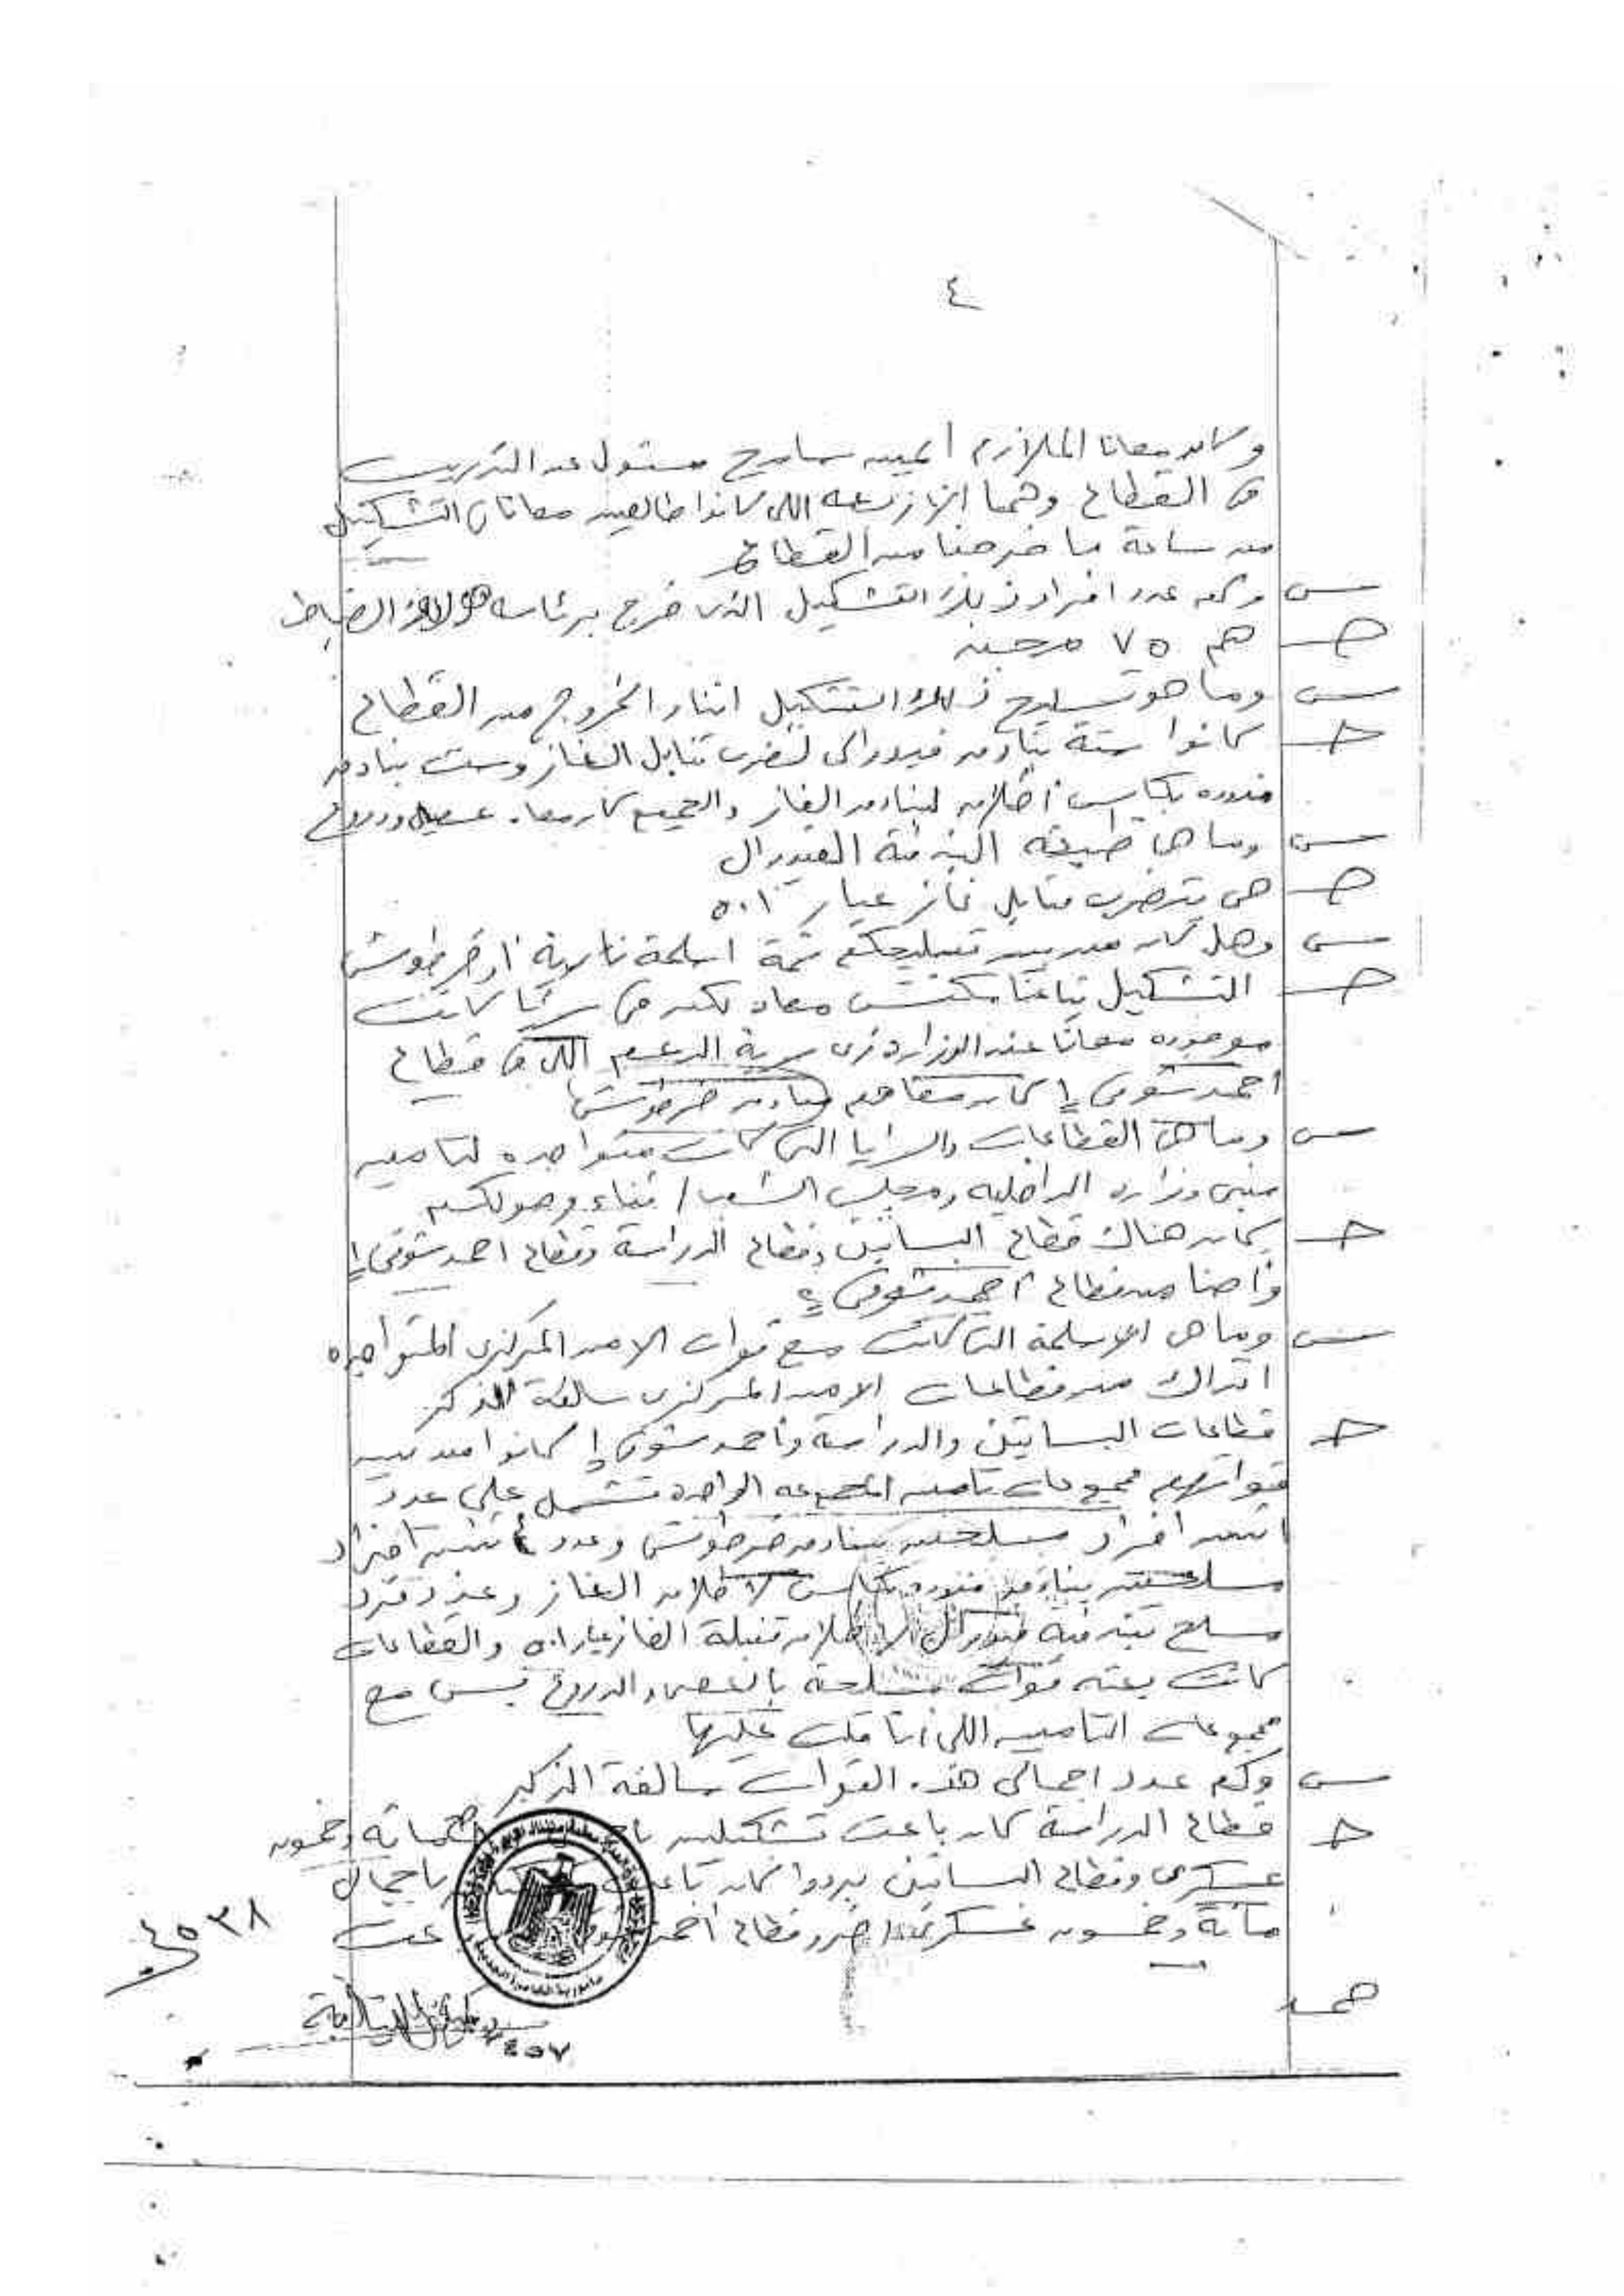 ٤
وكان معانا الملازم ايمن سامح مسئول عن التدريب
فى القطاع وهما الاربعه اللى كانوا طالعين معانا فى التشكيل
من ساعة ما خرجنا من القطاع
س وكم عدد افراد ذلك التشكيل الذى خرج برئاسه هؤلاء الضباط
ج هم ٧٥ مجند
س وما هو تسليح ذلك التشكيل اثناء الخروج من القطاع
ج كانوا ستة بنادق فيدرالى لضرب قنابل الغاز وست بنادق
مزوده بكاس اطلاق لبنادق الغاز والجميع كان معاه عصيان ودروع
س وما هى طبيعه البندقية الفيدرال
ج هى بتضرب قنابل غاز عيار ٥٠١
س وهل كان من بين تسليحكم ثمة اسلحة نارية او خرطوش
ج التشكيل بتاعنا مكنش معاه لكن فى سرايا كانت
موجوده معانا عند الوزارة زى سرية الدعم اللى فى قطاع
أحمد شوقى ١ كان معاهم بنادق خرطوش
س وما هى القطاعات والسرايا التى كانت متواجده لتامين
مبنى وزاره الداخليه ومجلس الشعب اثناء وصولكم
ج كان هناك قطاع البساتين وقطاع الدراسة وقطاع احمد شوقى ١
واحنا من قطاع أحمد شوقى ٢
س وما هى الاسلحة التى كانت مع قوات الامن المركزى المتواجده
انذاك من قطاعات الامن المركزى سالفة الذكر
ج قطاعات البساتين والدراسة وأحمد شوقى ١ كانوا من بين
قواتهم مجموعات تامين المجموعه الواحدة تشمل على عدد
اتنين افراد مسلحين ببنادق خرطوش وعدد اتنين افراد
مسلحين ببنادق مزوده بكاس لاطلاق الغاز وعدد فرد
مسلح ببندقية فيدرال لاطلاق قنبلة الغاز عيار ٥٠١ والقطاعات
كانت بعته قوات مسلحة بالعصى والدروع بس مع
مجموعات التامين اللى انا قلت عليها
س وكم عدد اجمالى هذه القوات سالفة الذكر
ج قطاع الدراسة كان باعت تشكيلين وخمسون
عسكرى وقطاع البساتين بردوا كان باعت باجمالى
مائة وخمسون عسكرى وقطاع أحمد